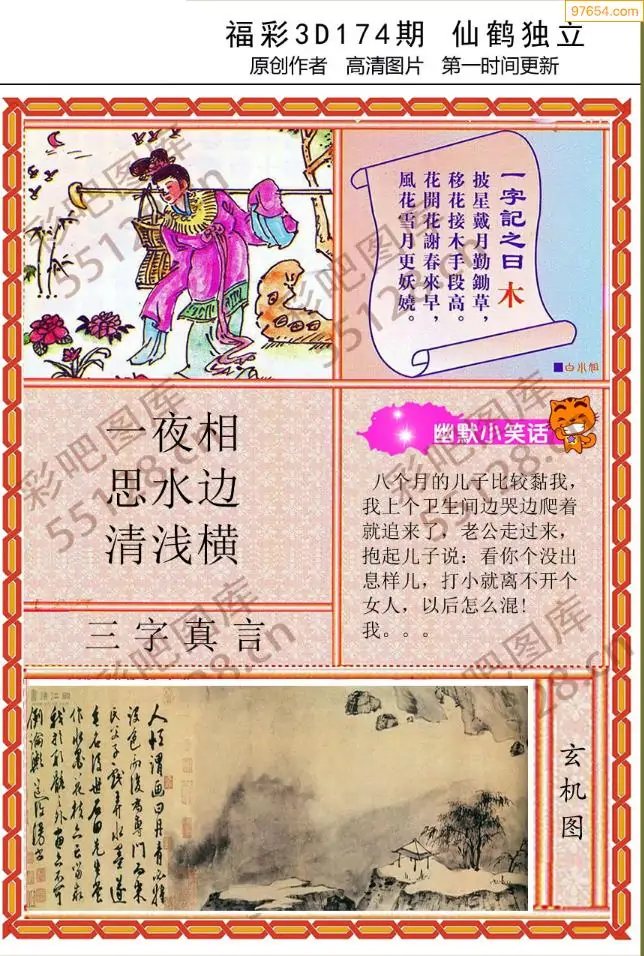 97654.com
福彩3D174期 仙鹤独立
原创作者 高清图片 第一时间更新
一字記之曰 木
披星戴月勤鋤草，
移花接木手段高。
花開花謝春來早，
風花雪月更妖嬈。
白小姐
一夜相
思水边
清浅横
三字真言
幽默小笑话
八个月的儿子比较黏我，
我上个卫生间边哭边爬着
就追来了，老公走过来，
抱起儿子说：看你个没出
息样儿，打小就离不开个
女人，以后怎么混!
我。。。
玄机图
彩吧图库
55128.cn